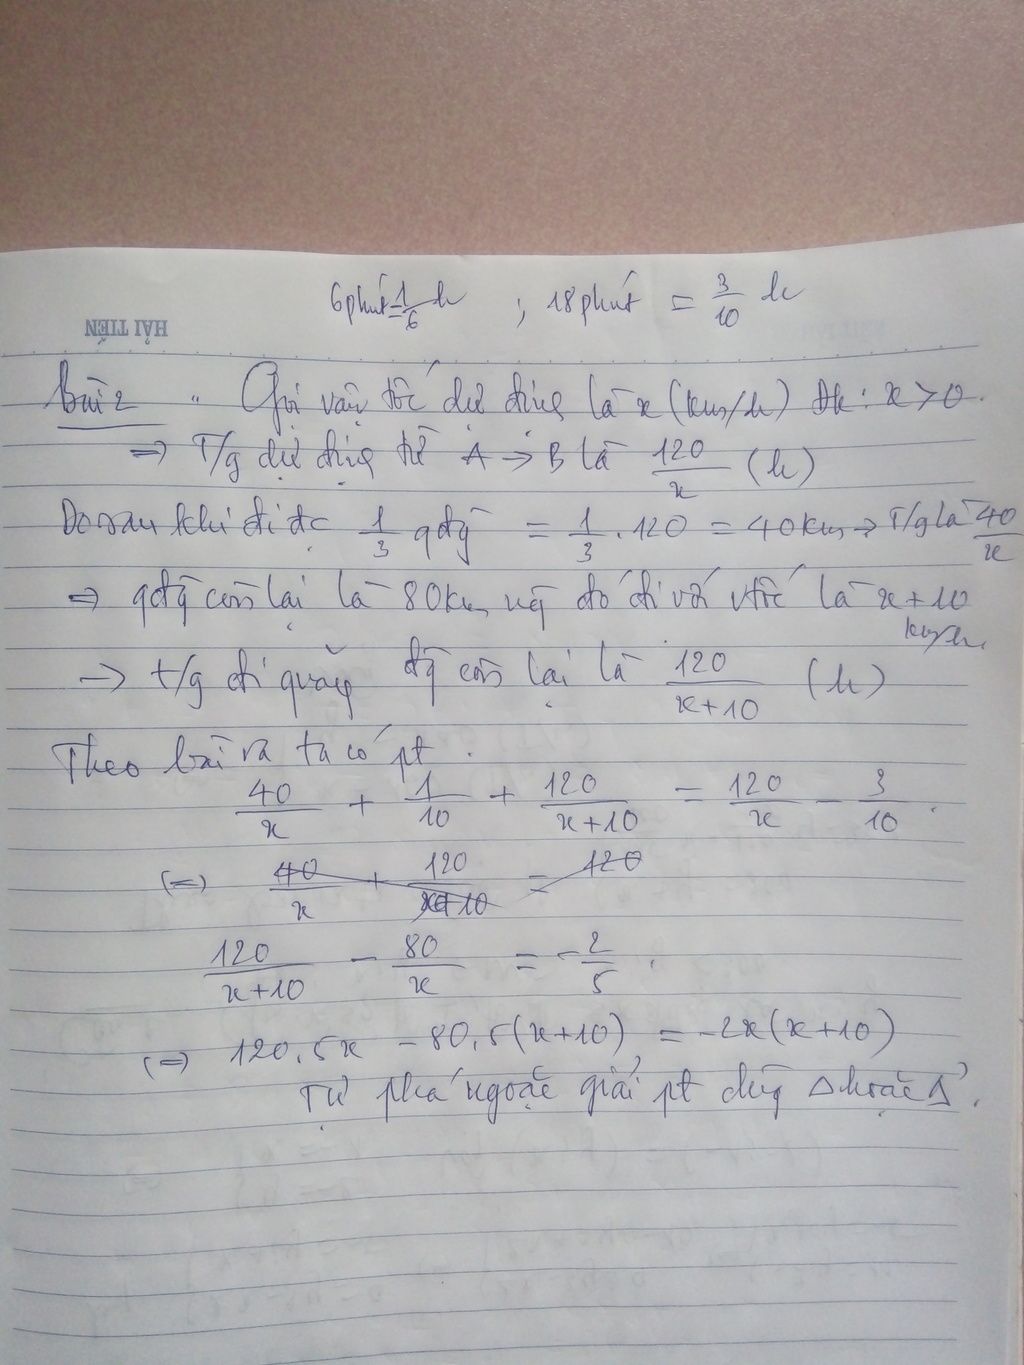 6 phút = 1/6 h ; 18 phút = 3/10 h
HẢI TIẾN
Bài 2 Gọi vận tốc dự định là x (km/h) Đk: x > 0.
=> T/g dự định từ A -> B là 120/x (h)
Do sau khi đi đc 1/3 qđg = 1/3 . 120 = 40 km -> T/g là 40/x
=> qđg còn lại là 80km đó đi với vtốc là x + 10
km/h.
-> t/g đi quãng đg còn lại là 120/(x+10) (h)
Theo bài ra ta có pt.
40/x + 1/10 + 120/(x+10) = 120/x - 3/10.
(=) 40/x + 120/(x+10) = 120
120/(x+10) - 80/x = -2/5.
(=) 120.5x - 80.5(x+10) = -2x(x+10)
Tự phá ngoặc giải pt dùng Δ hoặc Δ'.